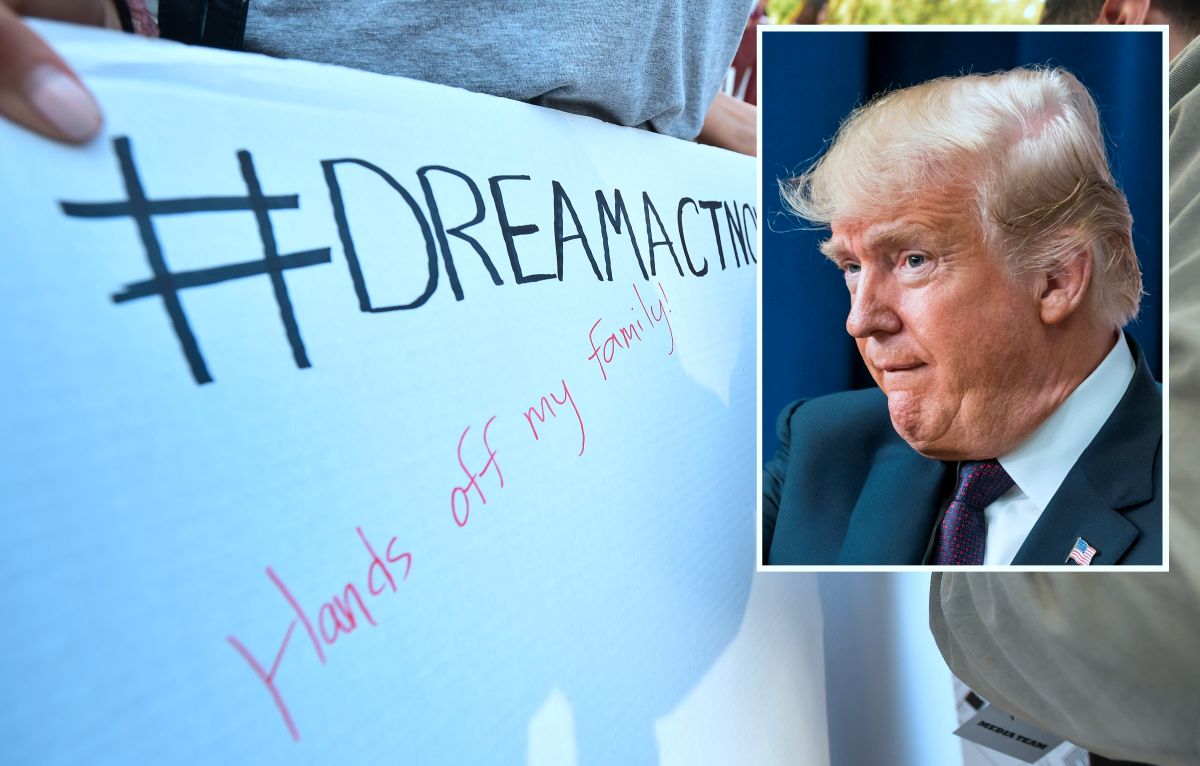 #DREAMACTNO
Hands off my family!
MEDIA TEAM